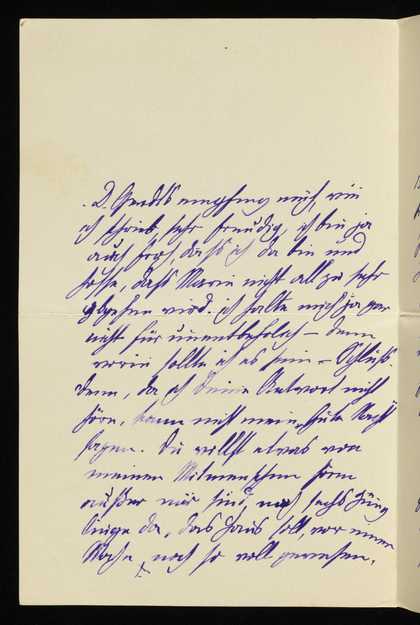 D. Gerdts empfing mich, wie
ich schrieb, sehr freudig, ich bin ja
auch froh, daß ich da bin und
hoffe, daß Marie nicht allzu sehr
abgehen wird. ich halte mich ja gar
nicht für unentbehrlich – denn
worin sollte ich es sein –
denn, da ich Deine Antwort nicht
höre, kann nicht mein, Gute Nacht
sagen. Du willst etwas von
meinen Mitmenschen hören
außer mir sind, noch, sechs Jüng
linge da, das Haus soll, vor einer
Woche noch so voll gewesen,